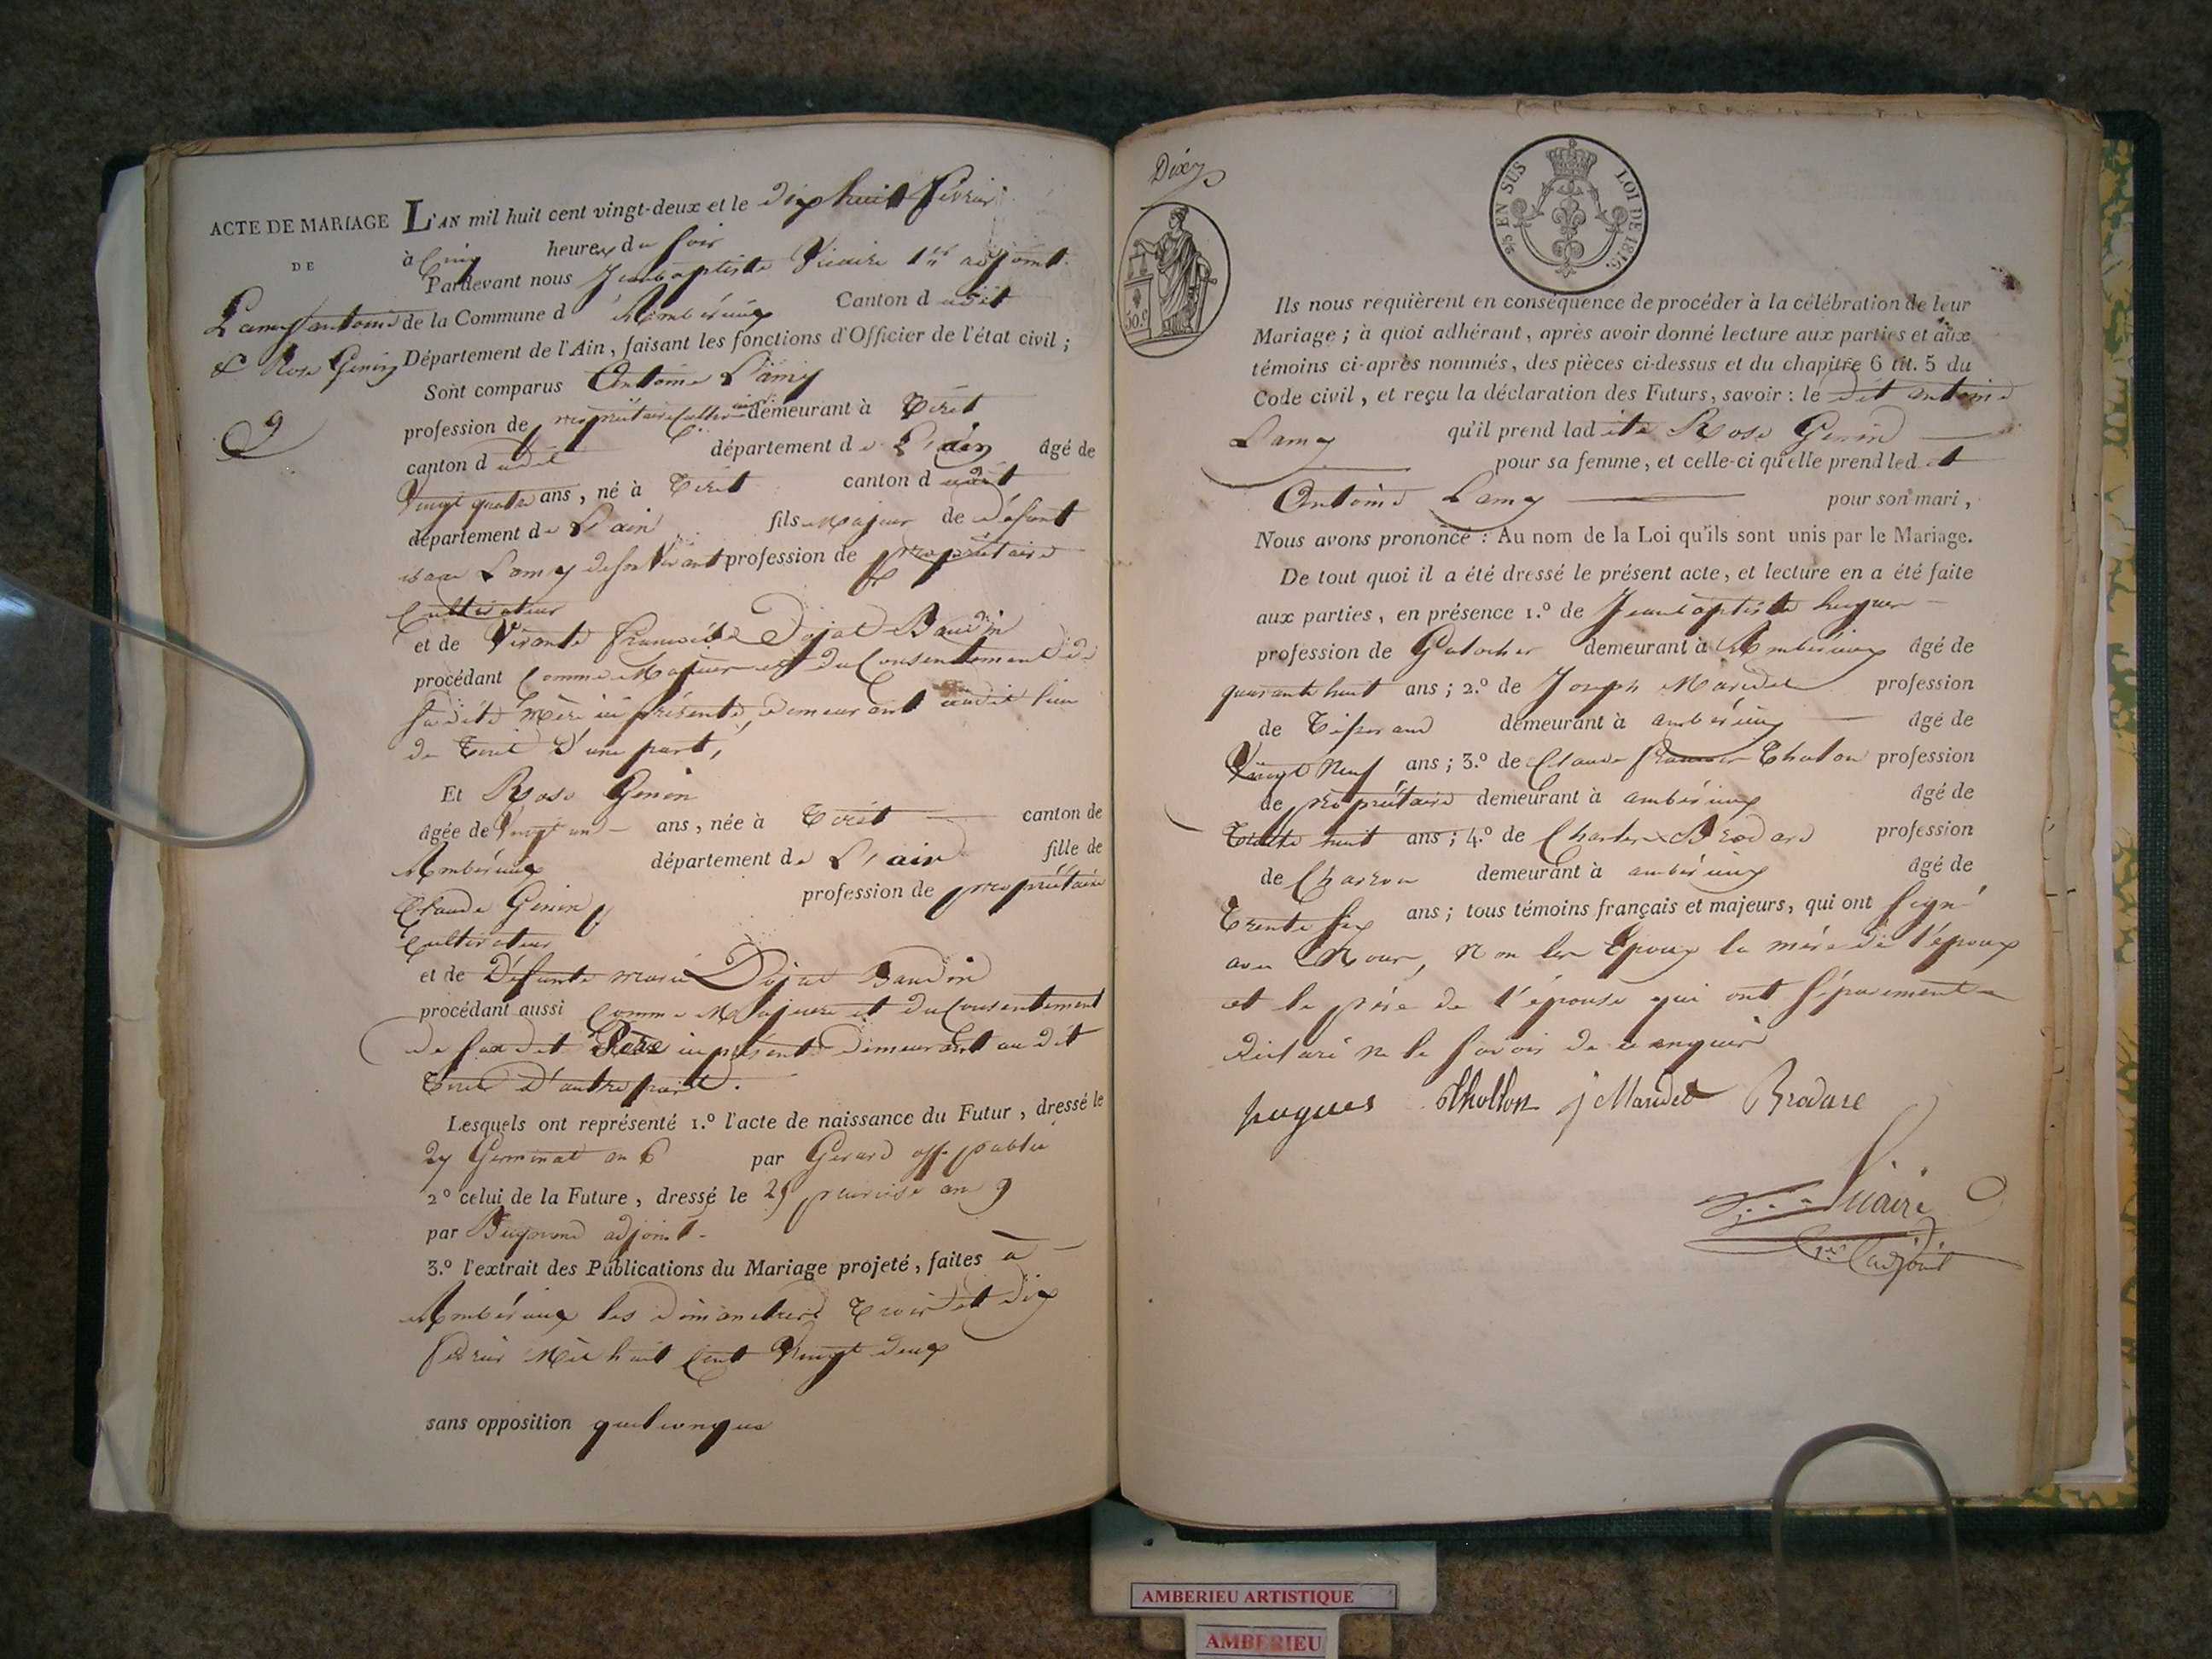 ACTE DE MARIAGE
DE
Lamy antoine
& Rose Genin
9
L'AN mil huit cent vingt-deux et le dix huit fevrier
à Cinq heures du soir
Pardevant nous Jeanbaptiste Vicaire 1er adjoint
de la Commune d'Ambérieux Canton dudit
Département de l'Ain, faisant les fonctions d'Officier de l'état civil;
Sont comparus Antoine Lamy
profession de propriétaire Cultivateur demeurant à Tiret
canton dudit département de L'ain âgé de
Vingt quatre ans, né à Tiret canton dudit
département de L'ain fils Majeur de défunt
isaac Lamy de son Vivant profession de propriétaire
Cultivateur
et de Vivante francoise Dojat Baudin
procédant Comme Majeur et du Consentement de
sadite Mère ici présente, demeurant audit lieu
de Tiret D'une part,
Et Rose Genin
âgée de Vingt un ans, née à Tiret canton de
Ambérieux département de L'ain fille de
Claude Genin profession de propriétaire
Cultivateur
et de Défunte marie Dojat Baudin
procédant aussi Comme Majeure et du Consentement
de sondit Père ici présent demeurant au dit
Tiret D'autre part.
Lesquels ont représenté 1.º l'acte de naissance du Futur, dressé le
27 Germinal an 6 par Gerard off. public
2º celui de la Future, dressé le 29 pluviose an 9
par adjoint
3.º l'extrait des Publications du Mariage projeté, faites à
Ambérieux les dimanches Trois et dix
fevrier Mil huit Cent Vingt deux
sans opposition quelconque
Dix
50.c
25 EN SUS LOI DE 1816.
Ils nous requièrent en conséquence de procéder à la célébration de leur
Mariage; à quoi adhérant, après avoir donné lecture aux parties et aux
témoins ci-après nommés, des pièces ci-dessus et du chapitre 6 tit. 5 du
Code civil, et reçu la déclaration des Futurs, savoir: le dit antoine
Lamy qu'il prend ladite Rose Genin
pour sa femme, et celle-ci qu'elle prend ledit
Antoine Lamy pour son mari,
Nous avons prononcé: Au nom de la Loi qu'ils sont unis par le Mariage.
De tout quoi il a été dressé le présent acte, et lecture en a été faite
aux parties, en présence 1.º de Jeanbaptiste hugues
profession de Galocher demeurant à Ambérieux âgé de
quarante huit ans; 2.º de Joseph Maridet profession
de Tisserand demeurant à ambérieux âgé de
Vingt Neuf ans; 3.º de Claude francois Tholon profession
de propriétaire demeurant à ambérieux âgé de
Trente huit ans; 4.º de Charles Brodard profession
de Charron demeurant à ambérieux âgé de
Trente six ans; tous témoins français et majeurs, qui ont signé
avec Nous, Non les Epoux la mère de l'époux
et le père de l'épouse qui ont séparement
Déclaré ne le savoir de ce enquis
hugues Thollon j Maridet Brodard
Vicaire
1er adjoint
AMBERIEU ARTISTIQUE
AMBERIEU